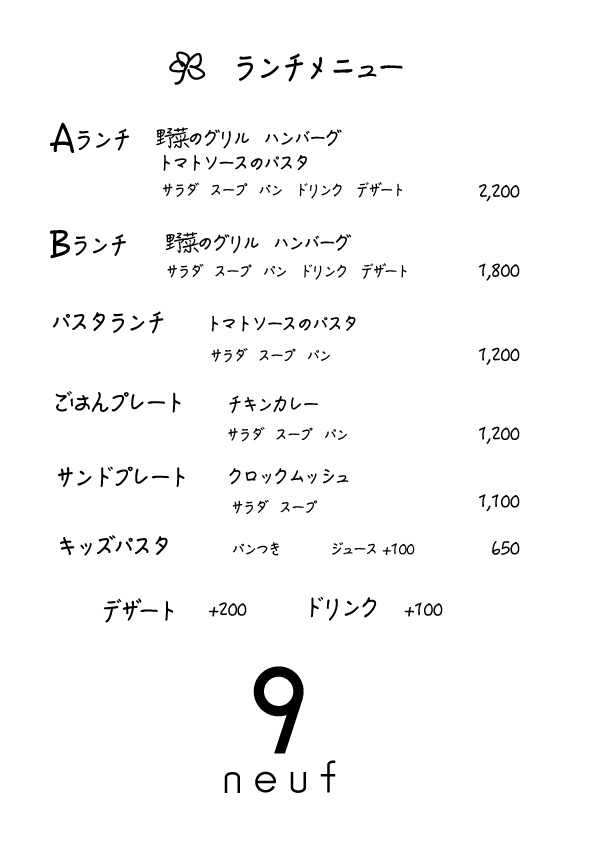 ランチメニュー
Aランチ 野菜のグリル ハンバーグ
トマトソースのパスタ
サラダ スープ パン ドリンク デザート 2,200
Bランチ 野菜のグリル ハンバーグ
サラダ スープ パン ドリンク デザート 1,800
パスタランチ トマトソースのパスタ
サラダ スープ パン 1,200
ごはんプレート チキンカレー
サラダ スープ パン 1,200
サンドプレート クロックムッシュ
サラダ スープ 1,100
キッズパスタ パンつき ジュース +100 650
デザート +200 ドリンク +100
9
neuf